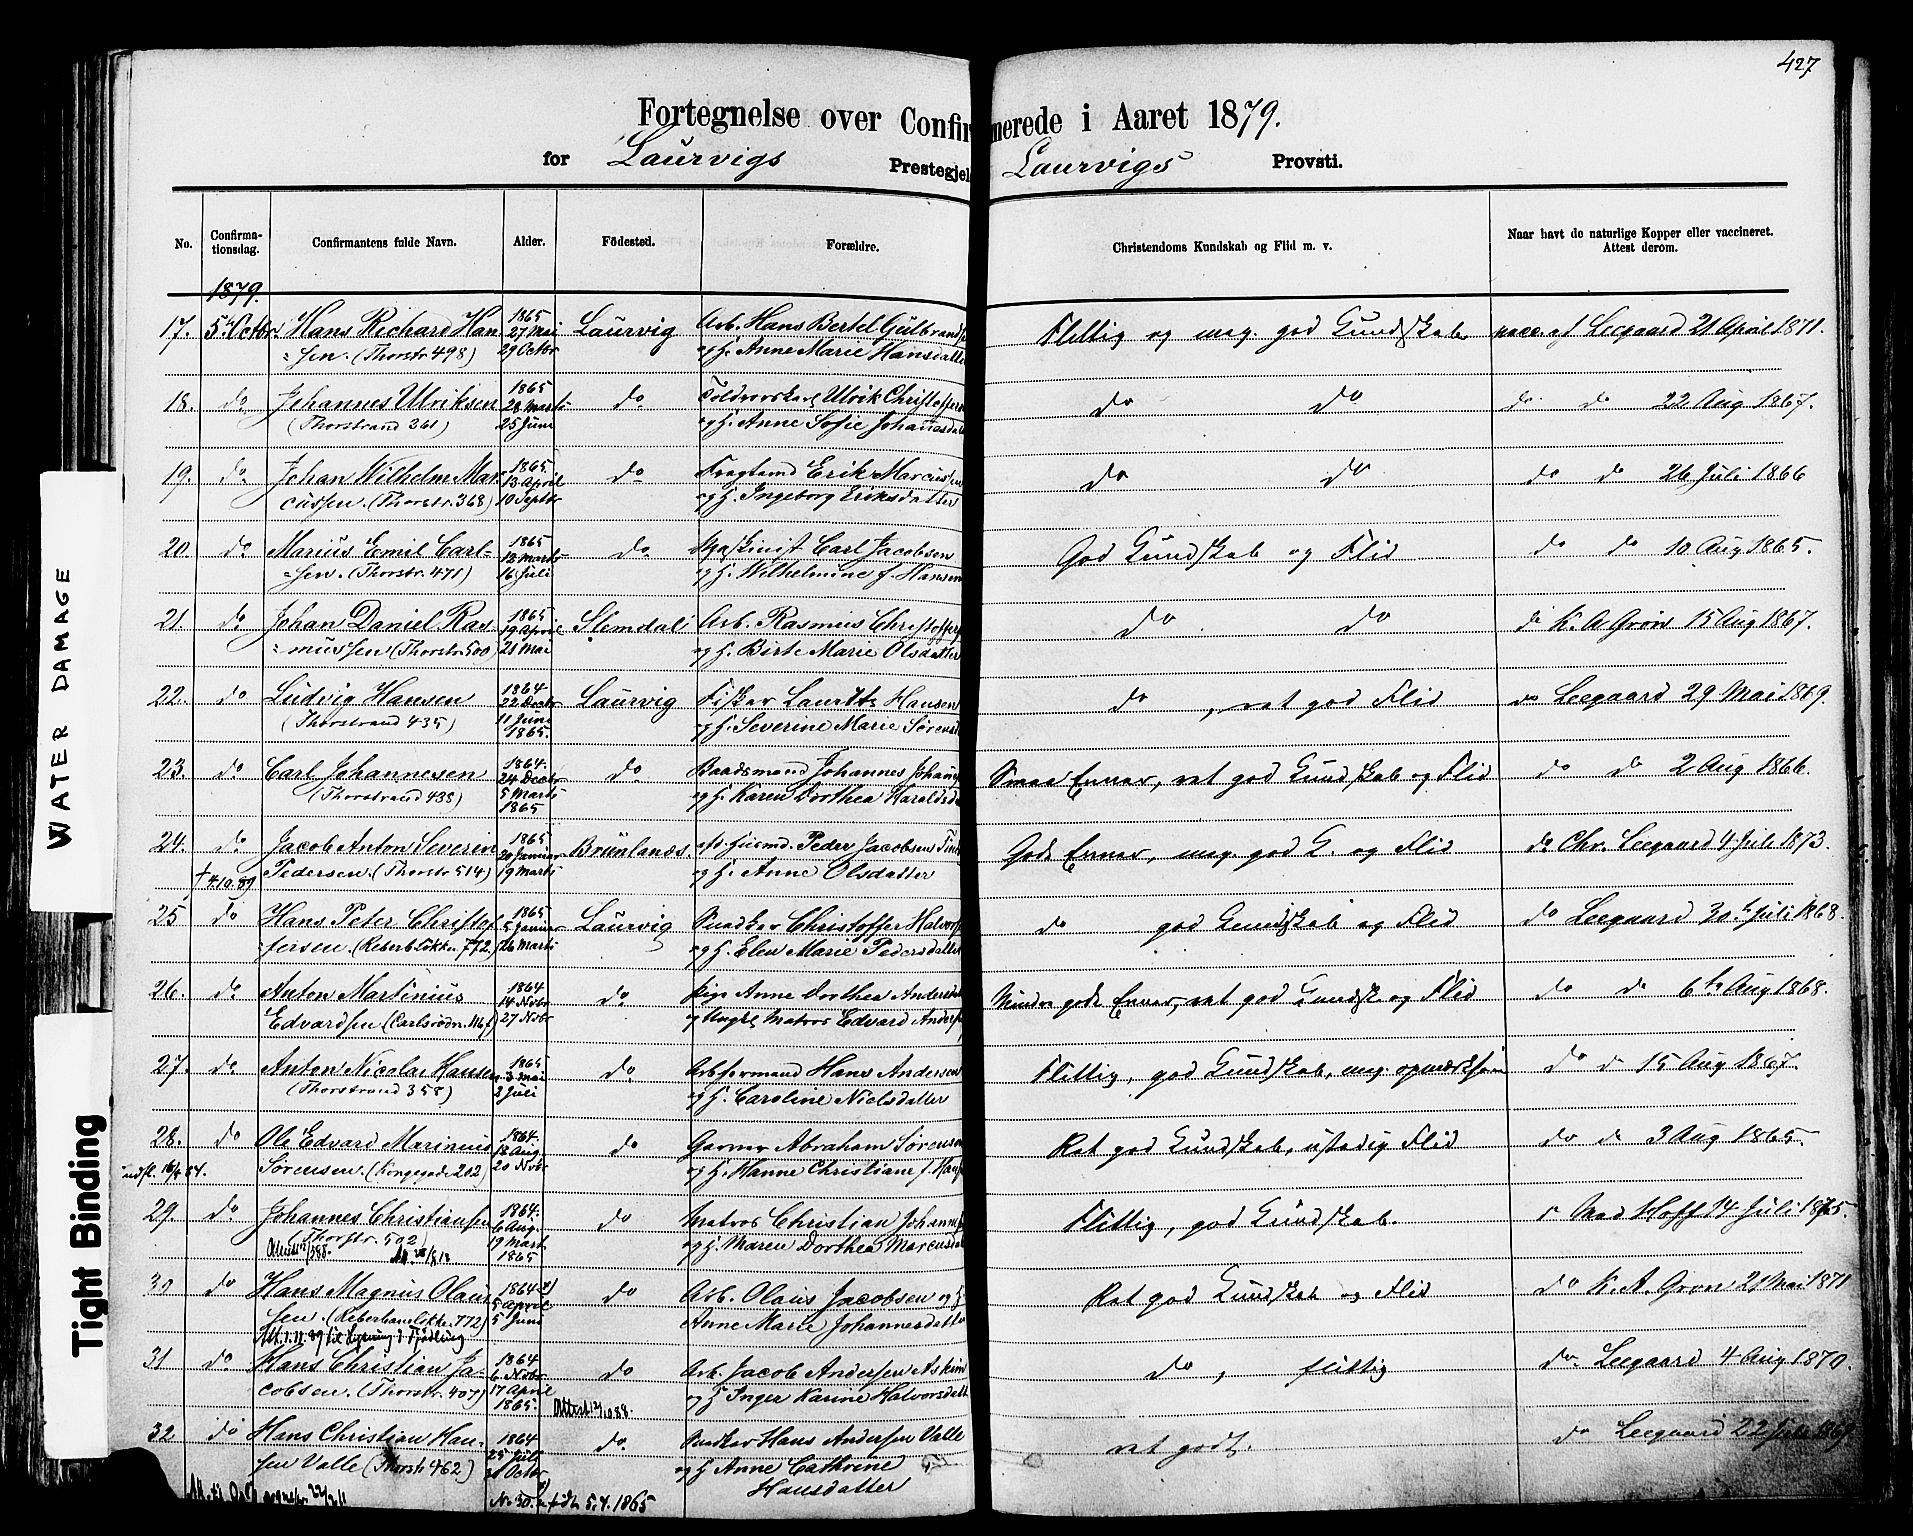 427
Fortegnelse over Confirmerede i Aaret 1879.
for Laurvigs Prestegjel Laurvigs Provsti.
No.
Confirma-
tionsdag.
Confirmantens fulde Navn.
Alder.
Födested.
Forældre.
Christendoms Kundskab og Flid m. v.
Naar havt de naturlige Kopper eller vaccineret.
Attest derom.
1879.
17. 5 Octbr. Hans Richard Han 1865 27 Mai Laurvig Arb. Hans Bertel Gulbrands Flittig og meg. god Kundskab vacc. af Leegaard 21 April 1871.
=sen. (Thorstr. 498) 29 Octbr og H. Anne Marie Hansdatter
18. do Johannes Ulriksen 1865 28 Marts do Ulrik Christoffers do do do do 22 Aug 1867.
(Thorstrand 361) 25 Juni og H. Anne Sofie Johannesdat
19. do Johan Wilhelm Mar 1865 13 April do Fragtemd Erik Marcussen do do do do 26 Juli 1866
cussen. (Thorstr. 368) 10 Septbr og H. Ingeborg Eriksdatter
20. do Marius Emil Carl- 1865 12 Marts do Maskinist Carl Jacobsen God Kundskab og Flid do do 10 Aug 1865.
=sen. (Thorstr. 471) 16 Juli og H. Wilhelmine f. Hansen
21. do Johan Daniel Ras 1865 19 April Slemdal Arb. Rasmus Christoffers do do do K. A. Grøn 15 Aug 1867.
=mussen (Thorstr. 500) 21 Mai og H. Birte Marie Olsdatter
22. do Ludvig Hansen 1864 22 Decbr Laurvig Fisker Lauritz Hansen do, ret god Flid do Leegaard 29 Mai 1869.
(Thorstrand 435) 11 Juni 1865. og H. Severine Marie Sørens
23. do Carl Johannesen 1864. 24 Decbr do Baadsmand Johannes Johann Smaa Evner, ret god Kundskab og Flid do do 2 Aug 1866.
(Thorstrand 438) 5 Marts 1865 og H. Karen Dorthea Haraldsd
24. do Jacob Anton Severin 1865 20 Januar Brunlanæs. Husmd. Peder Jacobsen Gode Evner, meg. god K. og Flid do Chr. Leegaard 4 Juli 1873.
† 4.10.89 Pedersen. (Thorstr 514) 19 Marts og H. Anne Olsdatter
25 do Hans Peter Christof 1865 5 Januar Laurvig Snedker Christoffer Halvors do god Kundskab og Flid do Leegaard 30 Juli 1868.
=fersen. (Reberb. Løkke. 772) 26 Marts og H. Elen Marie Pedersdatter
26. do Anton Martinius 1864 14 Novbr do. Pige Anne Dorthea Andersd Mindre gode Evner, ret god Kundsk. og Flid do do 6te Aug 1868.
Edvardsen 27 Novbr og Ungkl. Matros Edvard Anders
27. do Anton Nicolai Hansen 1865 3 Mai do Arbformand Hans Andersen Flittig, god Kundskab, meg. opmærksom do do 15 Aug 1867.
(Thorstrand 358) 2 Juli og H. Caroline Nielsdatter
28. do Ole Edvard Marinius 1864. 18 Aug. do Garver Abraham Sørensen Ret god Kundskab, ustadig Flid do do 3 Aug 1865.
Sørensen. (Kongegade 202) 20 Novbr og H. Hanne Christiane f. Han
29. do Johannes Christiansen 1864. 6 Aug. do Matros Christian Johannes Flittig, god Kundskab. Hoff 14 Juli 1875.
(Thorstr. 502) 19 Marts 1865 og H. Maren Dorthea Marcusdat
30 do Hans Magnus Olaus 1864 5 April do Arb. Olaus Jacobsen og H Ret god Kundskab og Flid do K. A. Grøn 21 Mai 1871
sen. (Reberbaneløkke. 772) 5 Juni Anne Marie Johannesdatter
Att. 1.11.89 til Lysning i Tjødling
31 do Hans Christian Ja- 1864 6 Novbr do Arb. Jacob Andersen Askim do, flittig do Leegaard 4 Aug 1870.
cobsen. (Thorstr. 407) 17 April 1865. og H Inger Karine Halvorsdatt
Attest 12/10 88.
32 do Hans Christian Han- 1864 25 Juli do. Snedker Hans Andersen Valle ret godt. do Leegaard 22 Juli
sen Valle (Thorstr. 462) Octbr og H Anne Cathrine
Hansdatter
No 30. født 5.4.1865
WATER DAMAGE
Tight Binding